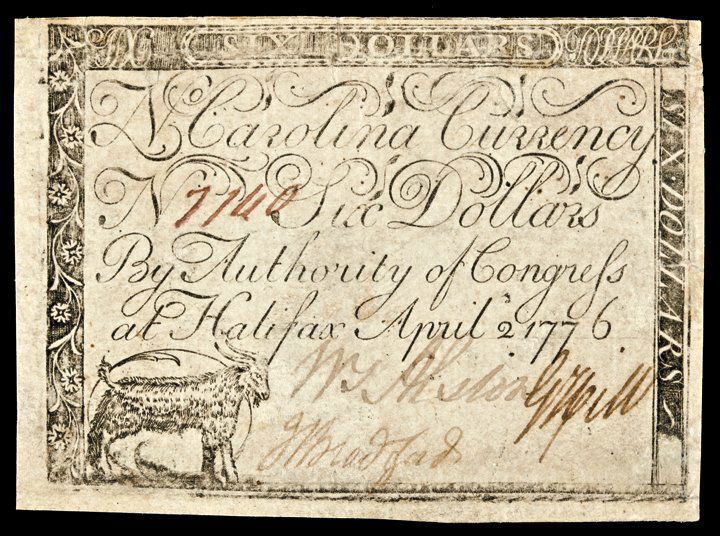 SIX SIX DOLLARS DOLLARS
No Carolina Currency
No 7740 Six Dollars
By Authority of Congress
at Halifax April 2 1776
Wm Alston
J Bradford
SIX DOLLARS